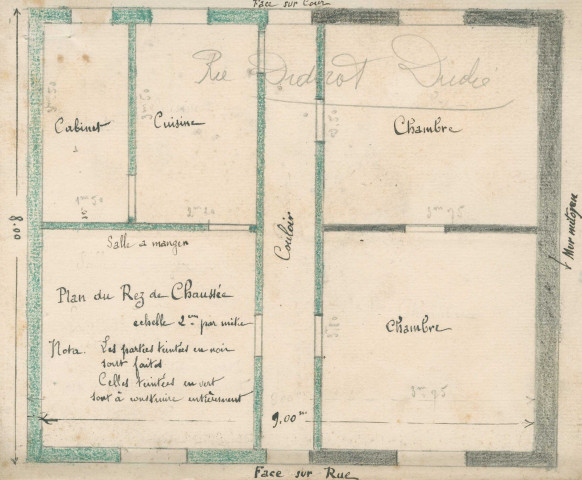 Face sur Cour
Rue Diderot
Cabinet
Cuisine
Chambre
Couloir
8.00
Mur mitoyen
3m75
Salle a manger
Plan du Rez de Chaussée
echelle 2cm par mètre
Nota. Les parties teintées en noir
sont faites
Celles teintées en vert
sont à construire entièrement
Chambre
3m75
9.00m
Face sur Rue